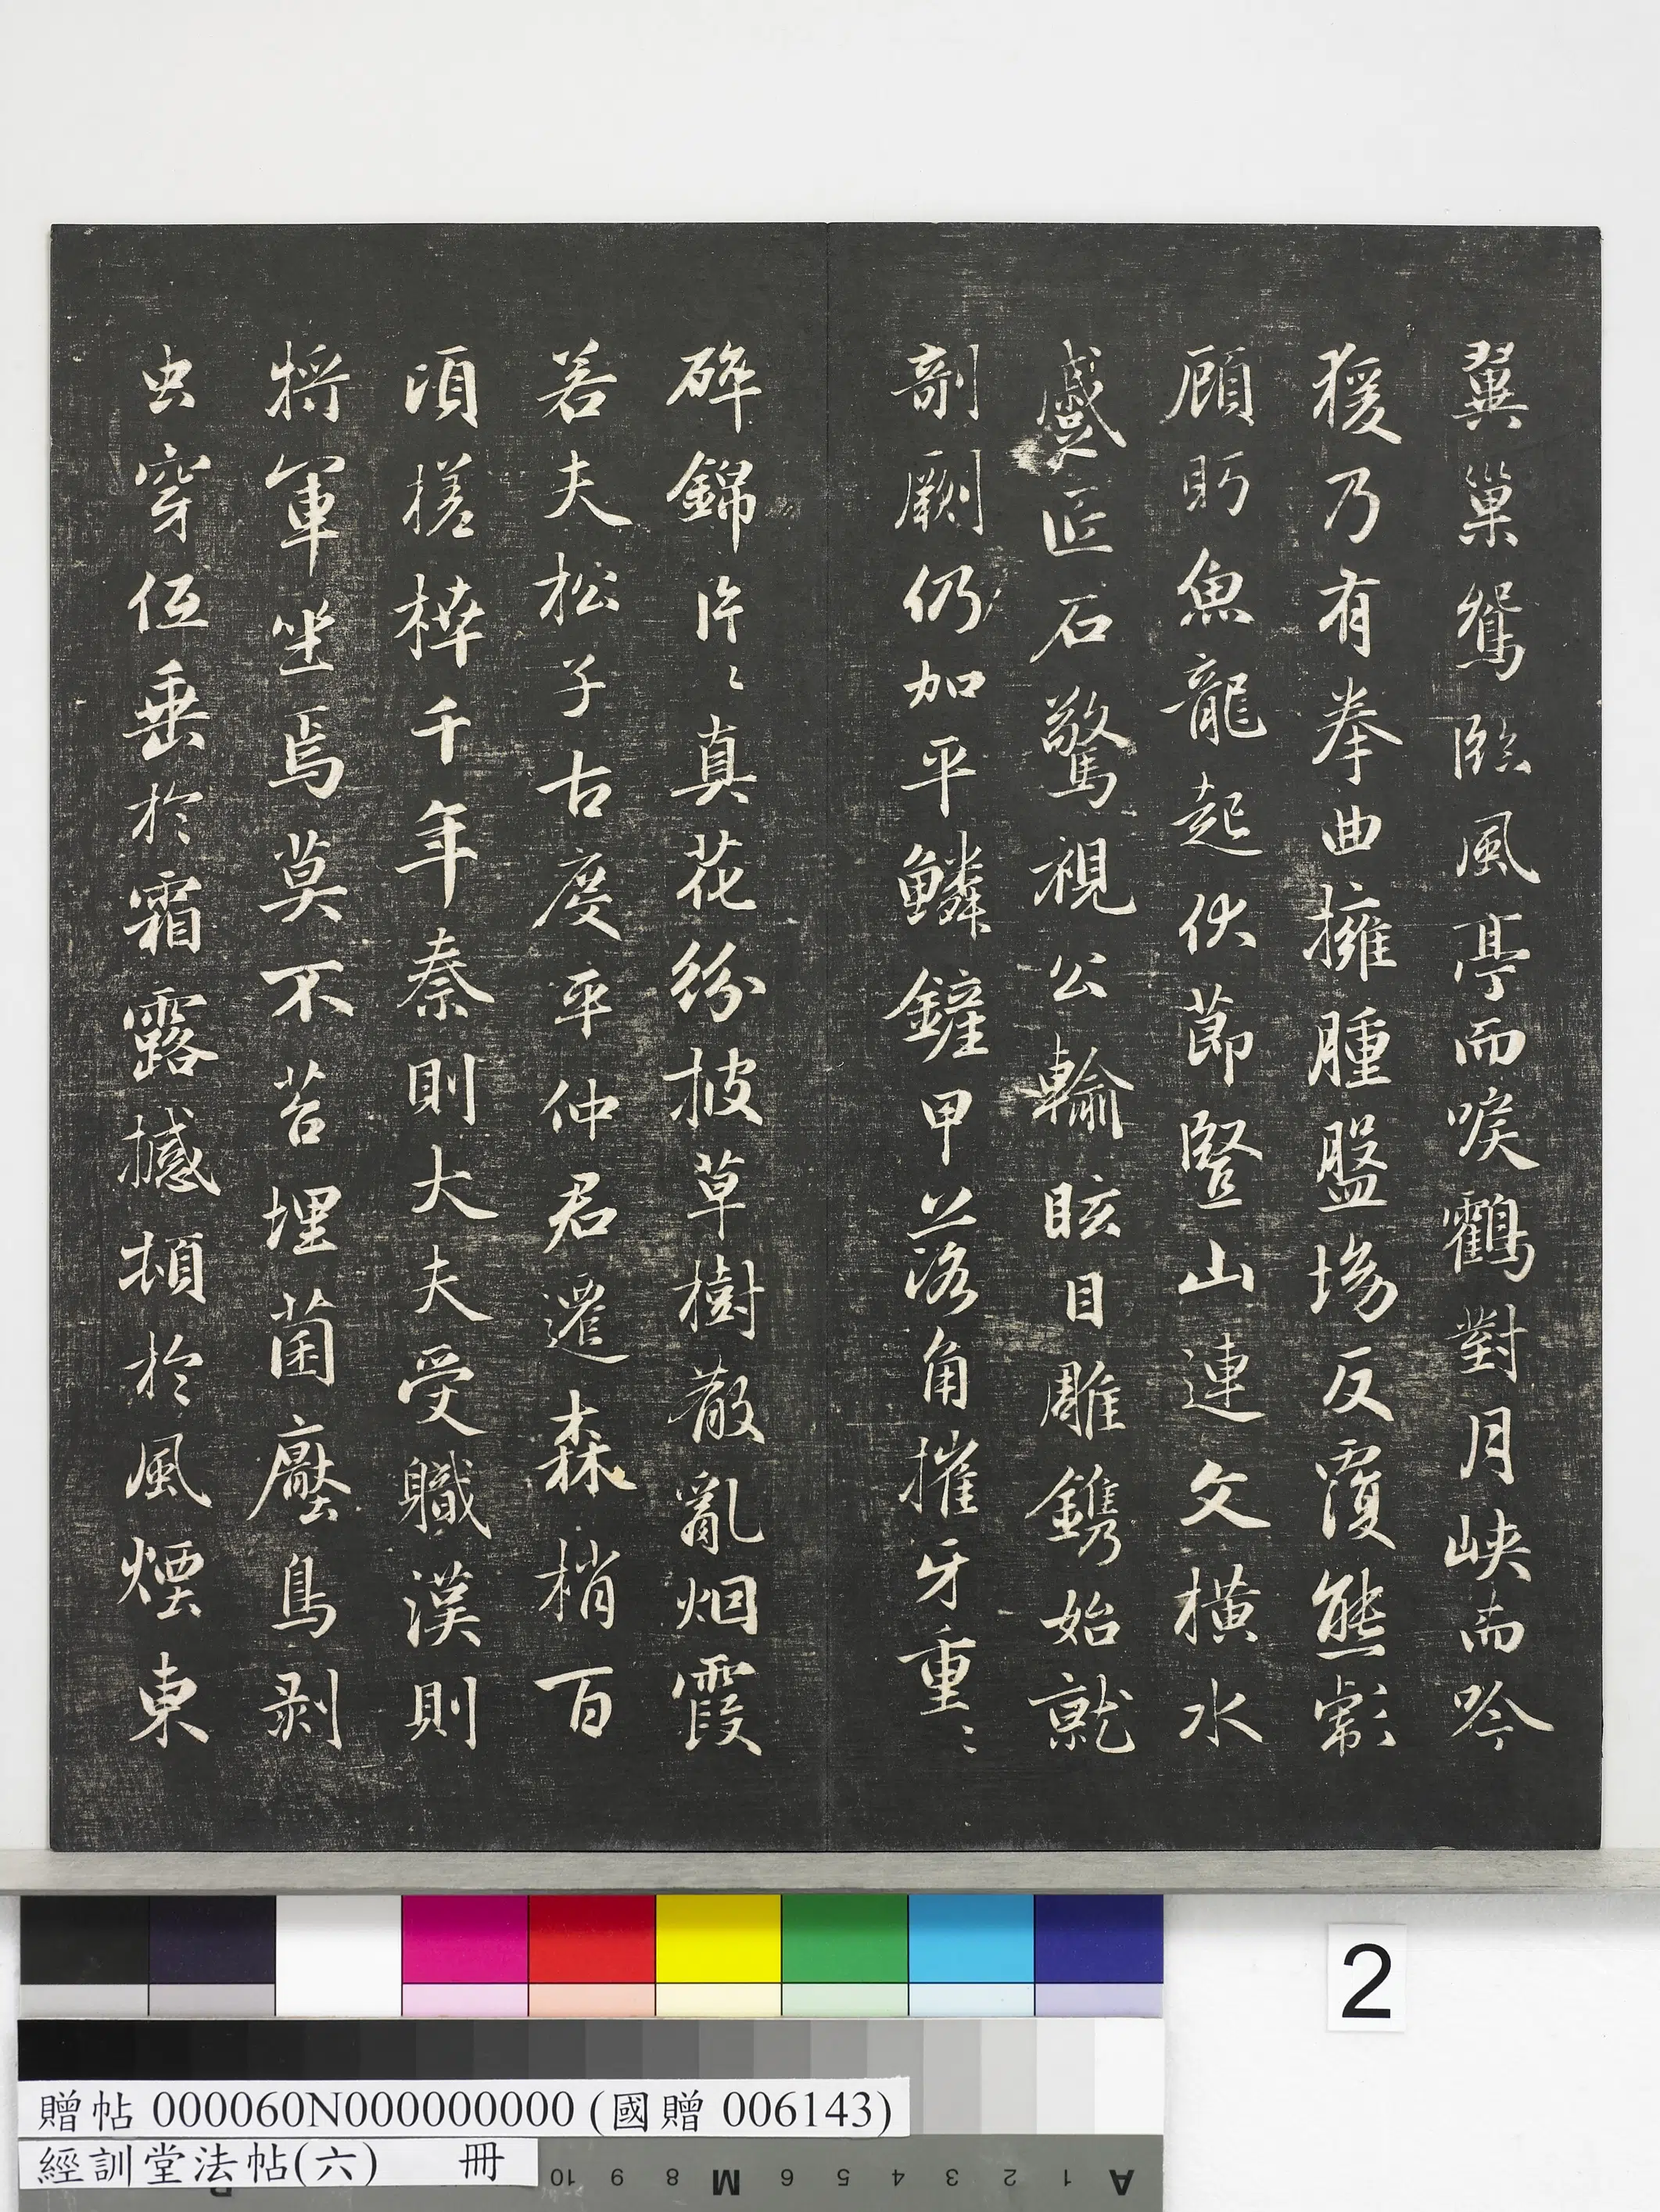 翼巢鴛臨風亭而唳鶴對月峽而吟
猨乃有拳曲擁腫盤坳反覆熊彪
顧眄魚龍起伏節豎山連文橫水
蹙匠石驚視公輸眩目雕鐫始就
剞劂仍加平鱗鏟甲落角摧牙重〻
碎錦片〻真花紛披草樹散亂烟霞
若夫松子古度平仲君遷森梢百
頃槎枿千年秦則大夫受職漢則
將軍坐焉莫不苔埋菌壓鳥剥
虫穿低垂於霜露撼頓於風煙東
2
贈帖 000060N000000000 (國贈 006143)
經訓堂法帖(六) 冊
10 9 8 M 6 5 4 3 2 1 A